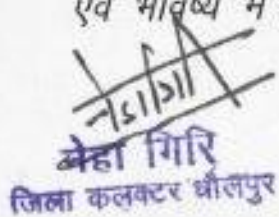 एवं भविष्य में
नेहा गिरि
जिला कलक्टर धौलपुर